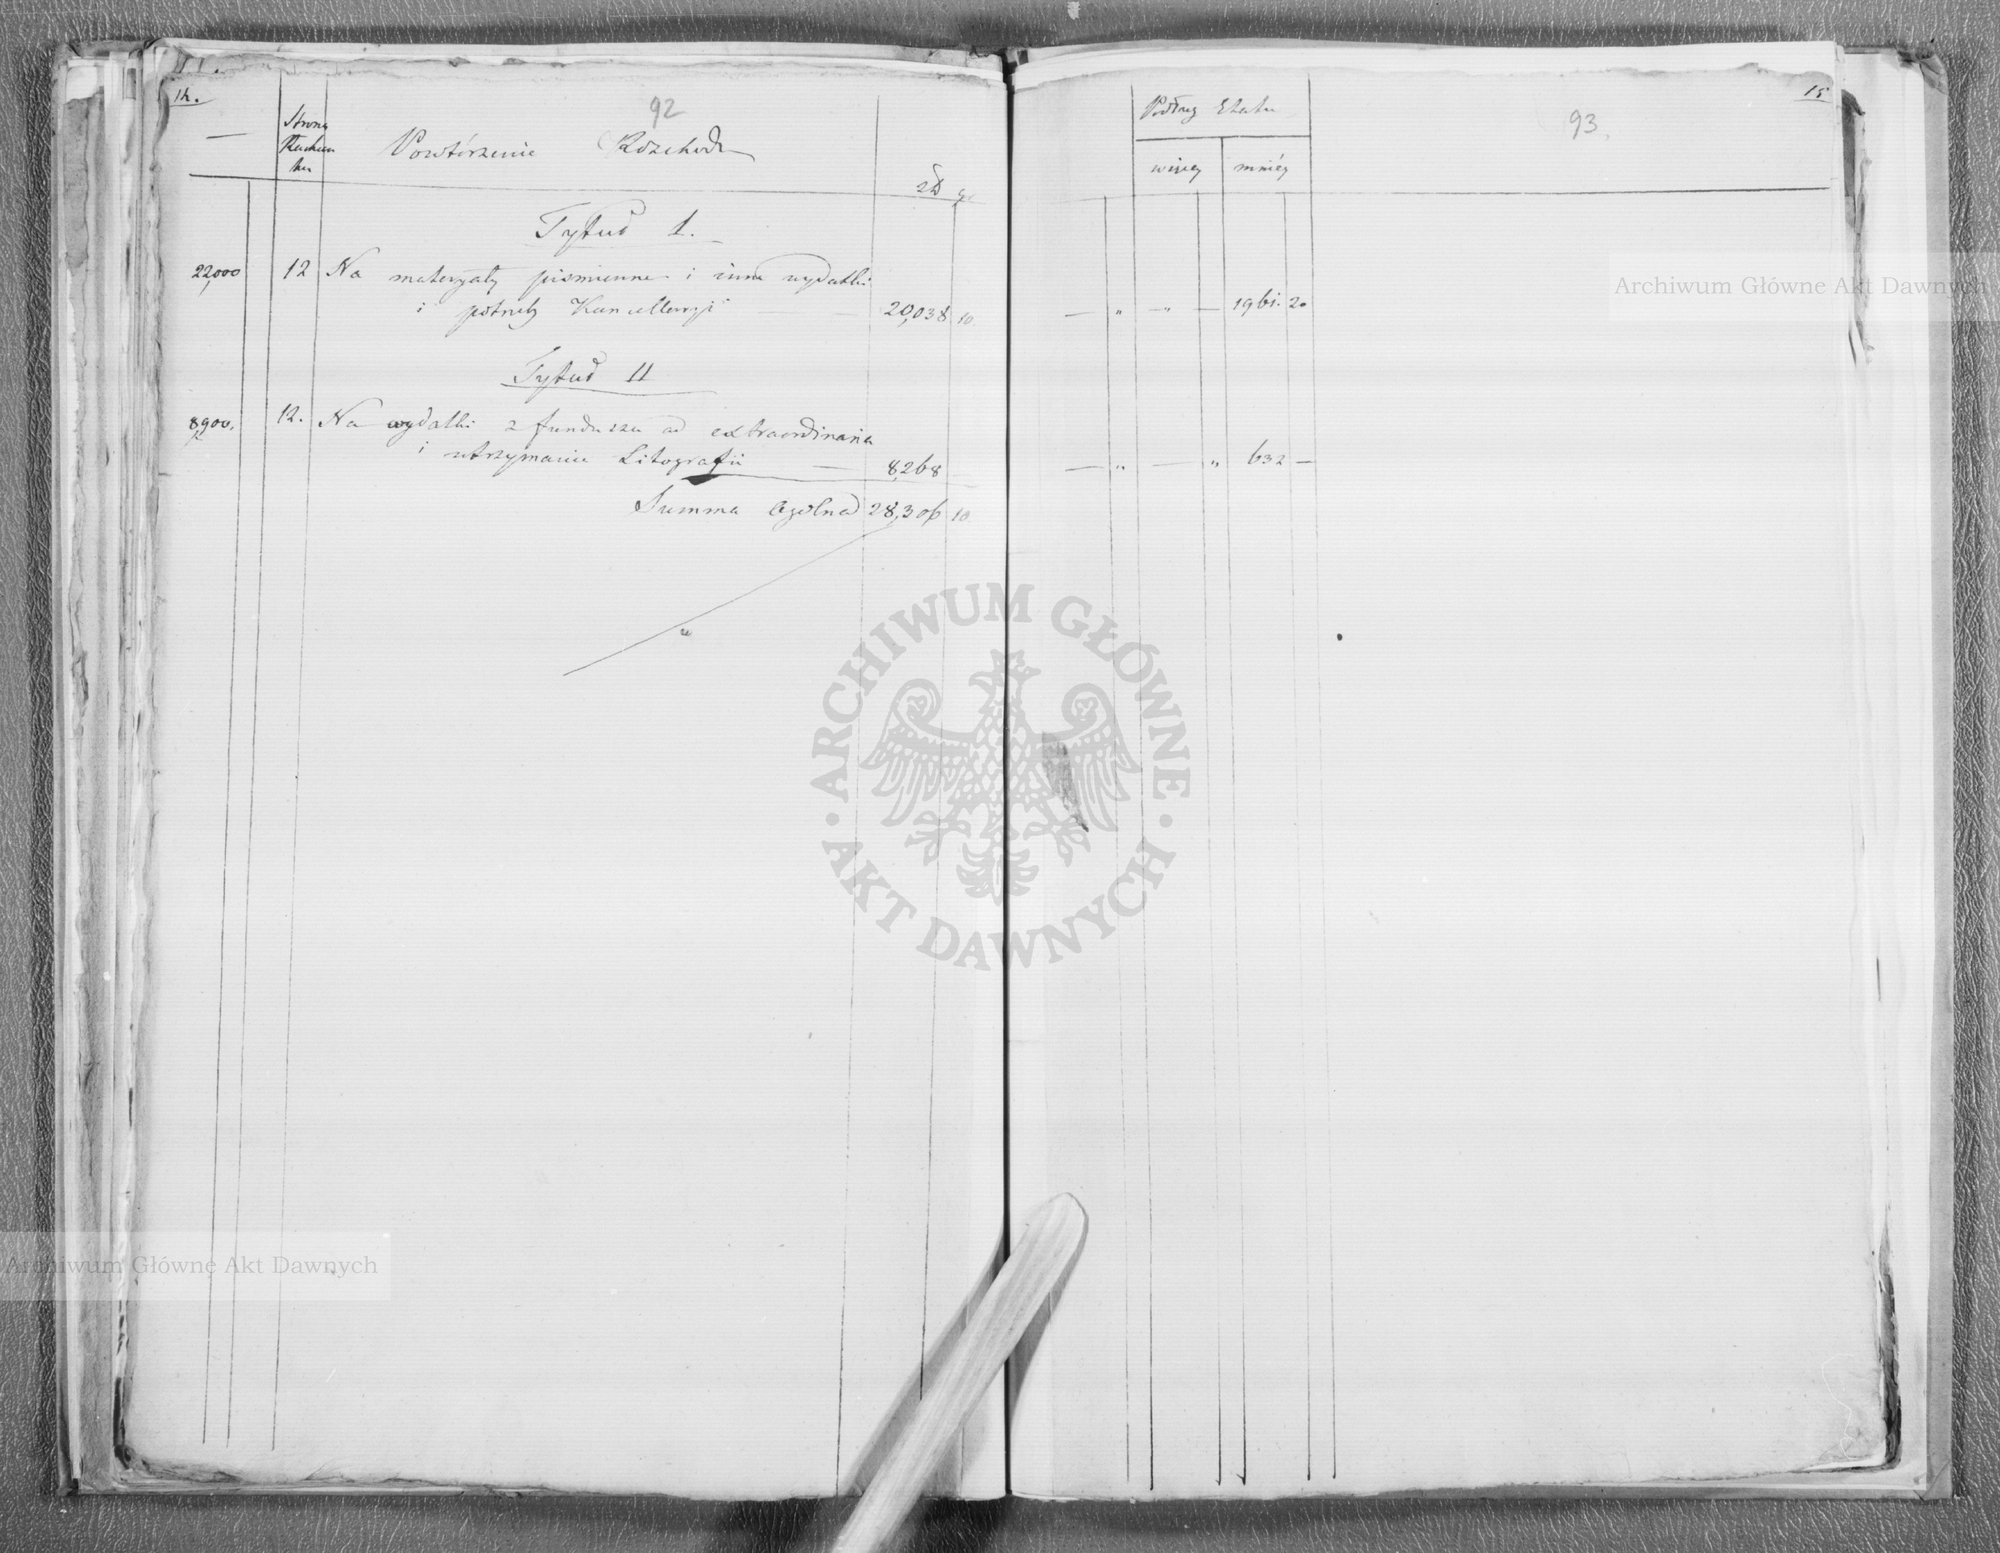 14.
92
Strona
Rachun
ku
Powtórzenie Rozchodu
zł gr
Tytuł I.
22,000 12 Na materyały piśmienne i inne wydatki
i potrzeby Kancellaryi — — 20,038 10
Tytuł II
8,900. 12. Na wydatki z funduszu ad extraordinaria
i utrzymanie Litografii — 8,268 —
Summa Ogólna 28,306 10
15
93.
Podług Etatu
więcey mniéy
— " — " — 1961. 20
— " — " 632 —
Archiwum Główne Akt Dawnych
ARCHIWUM GŁÓWNE · AKT DAWNYCH ·
Archiwum Główne Akt Dawnych